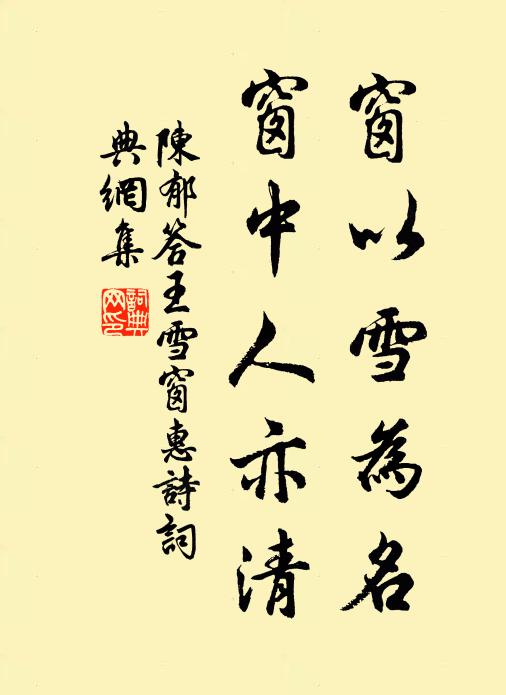 窗以雪為名
窗中人亦清
陳郁答王雪窗惠詩詞
典網集
詞典
网印